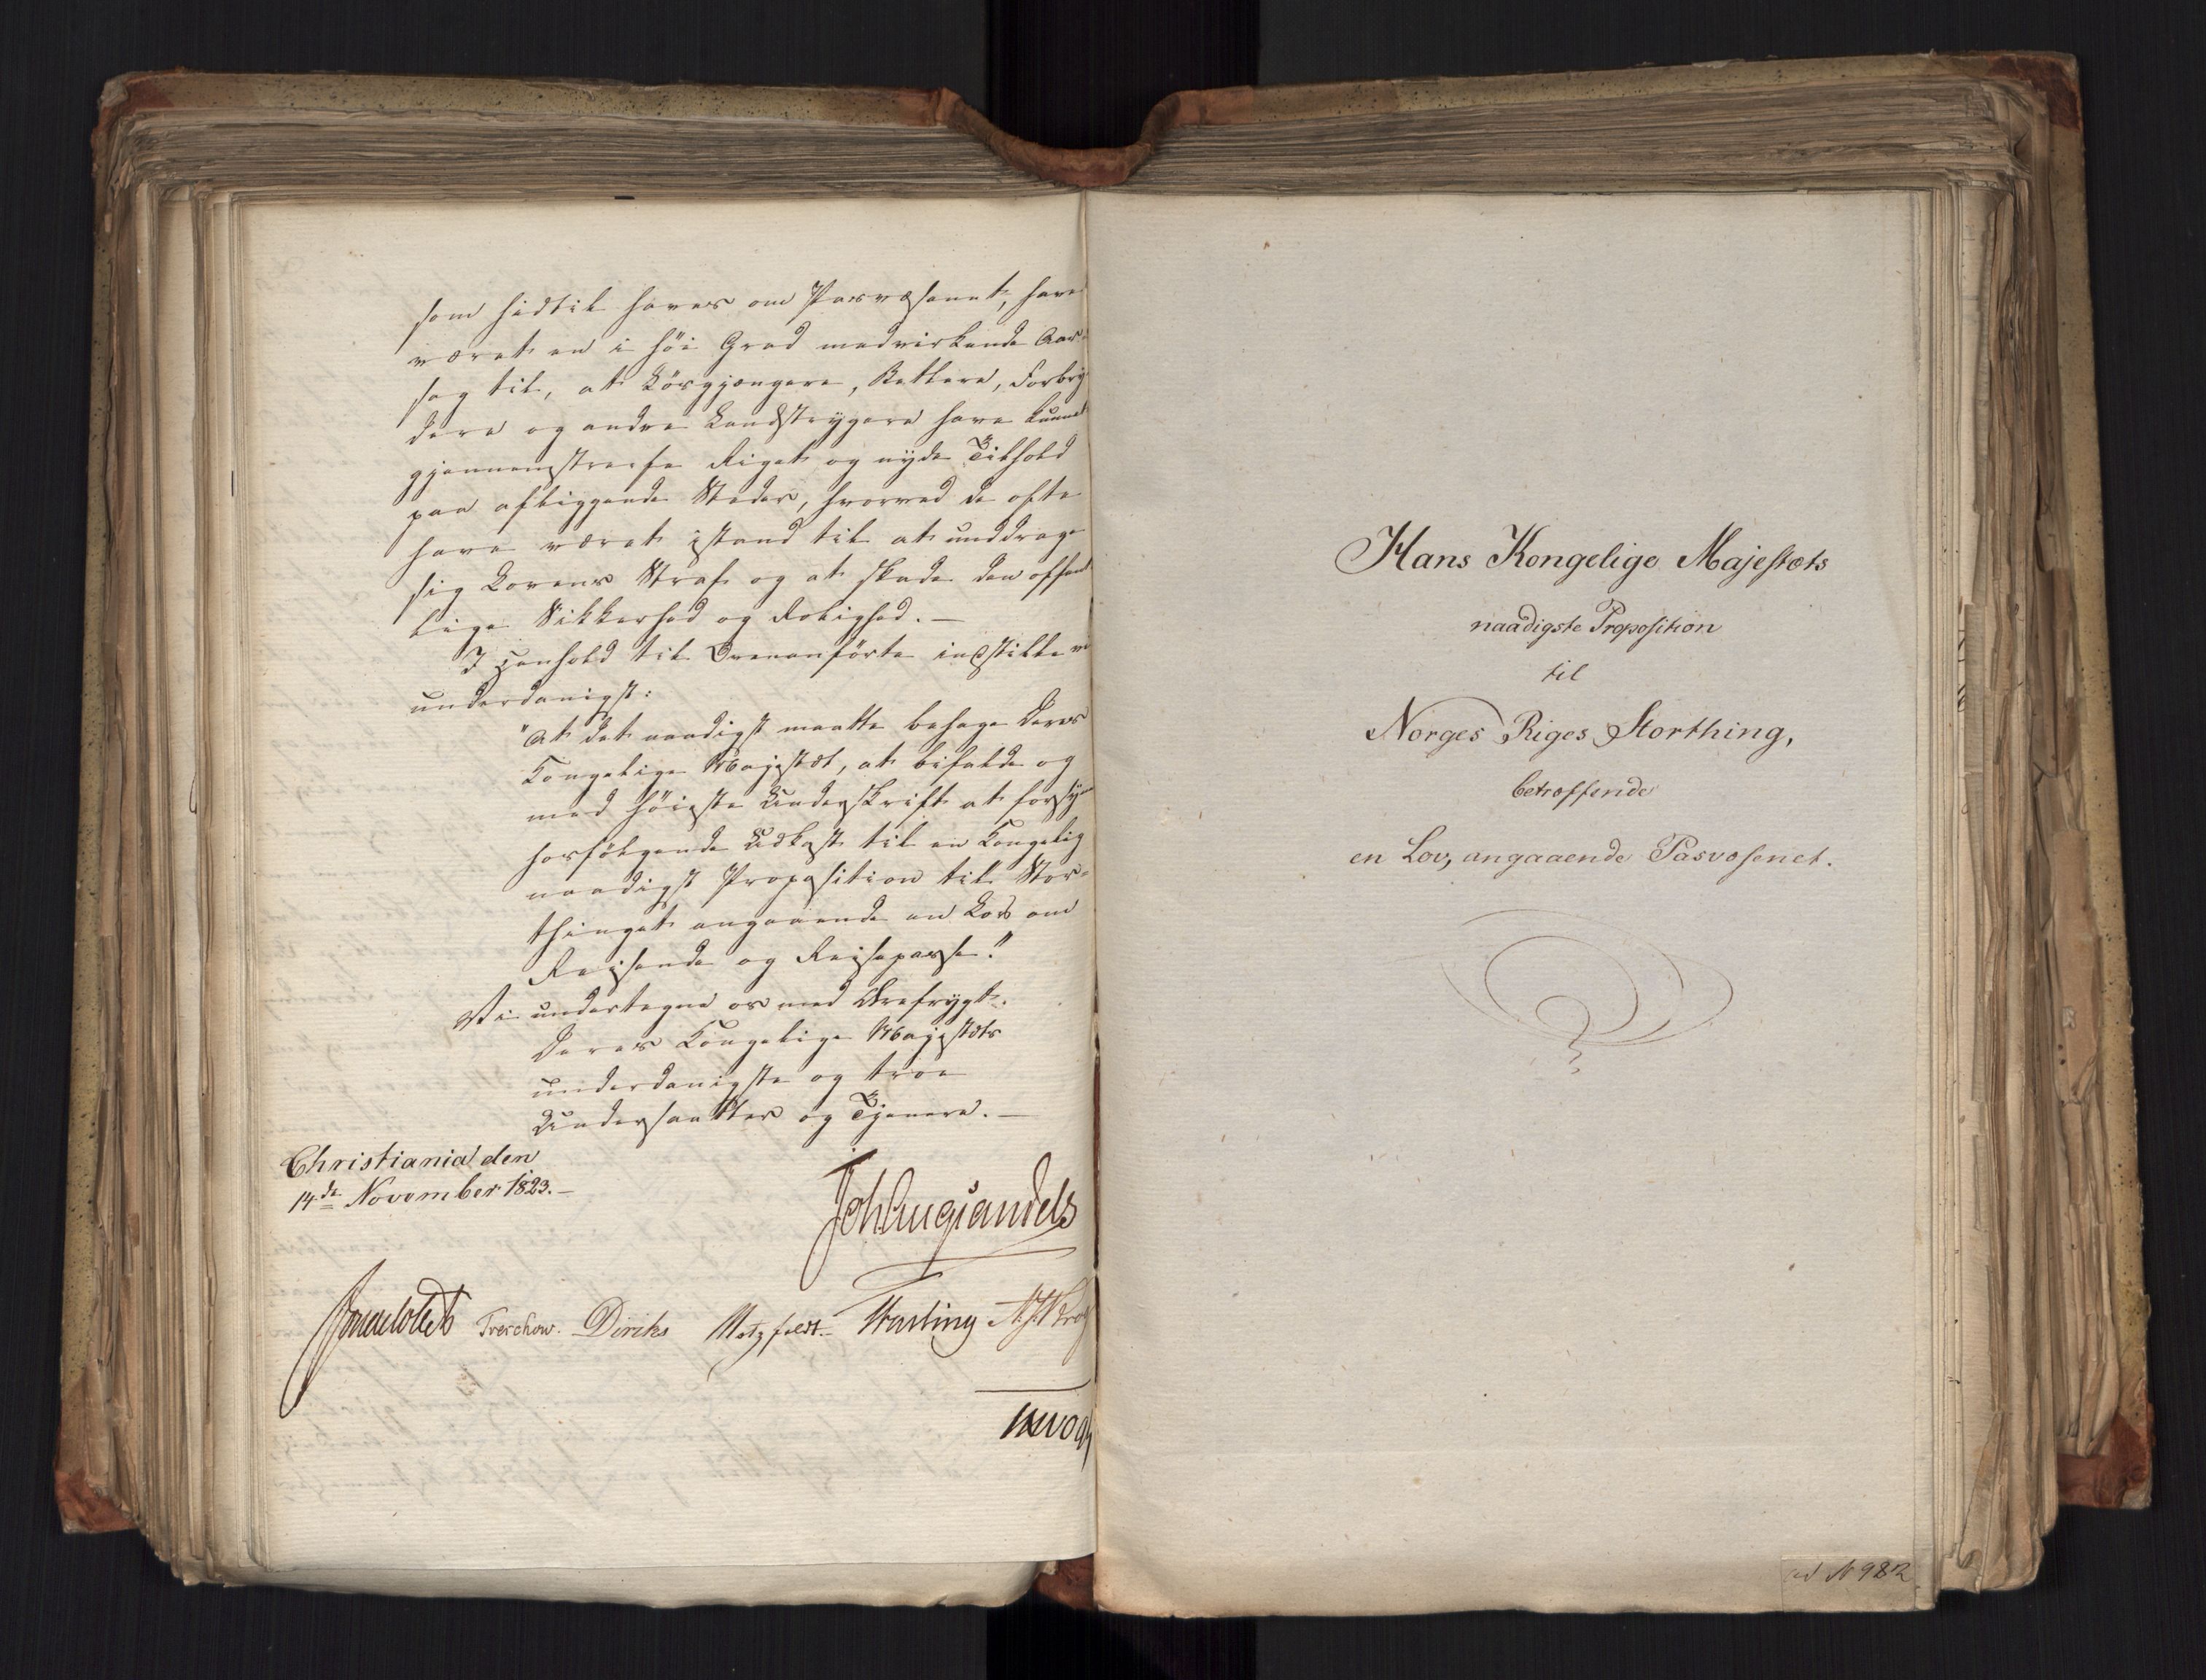 som hidtil haves om Pasvæsenet, have
været en i höi Grad medvirkende Aar-
sag til, at Lösgjængere, Betlere, Forbry-
dere og andre Landstrygere have kunnet
gjennemstreife Riget og nyde Tilhold
paa afliggende Steder, hvorved de ofte
have været istand til at unddrage
sig Lovens Straf og at skade den offent
lige Sikkerhed og Rolighed. —
I Henhold til Ovenanförte indstille vi
underdanigst:
"At det naadigst maatte behage Deres
Kongelige Majestæt, at bifalde og
med höieste Underskrift at forsyne
hosfölgende Udkast til en Kongelig
naadigst Proposition til Stor-
thinget angaaende en Lov om
Reisende og Reisepasse."
Vi undertegne os med Ærefrygt.
Deres Kongelige Majestæts
underdanigste og troe
Undersaatter og Tjenere. —
Christiania den
14de November 1823. —
Joh Aug Sandels
Sommerhielm Treschow. Diriks Motzfeldt. Fasting
Hans Kongelige Majestæts
naadigste Proposition
til
Norges Riges Storthing,
betræffende
en Lov, angaaende Pasvæsenet.
ad N 982